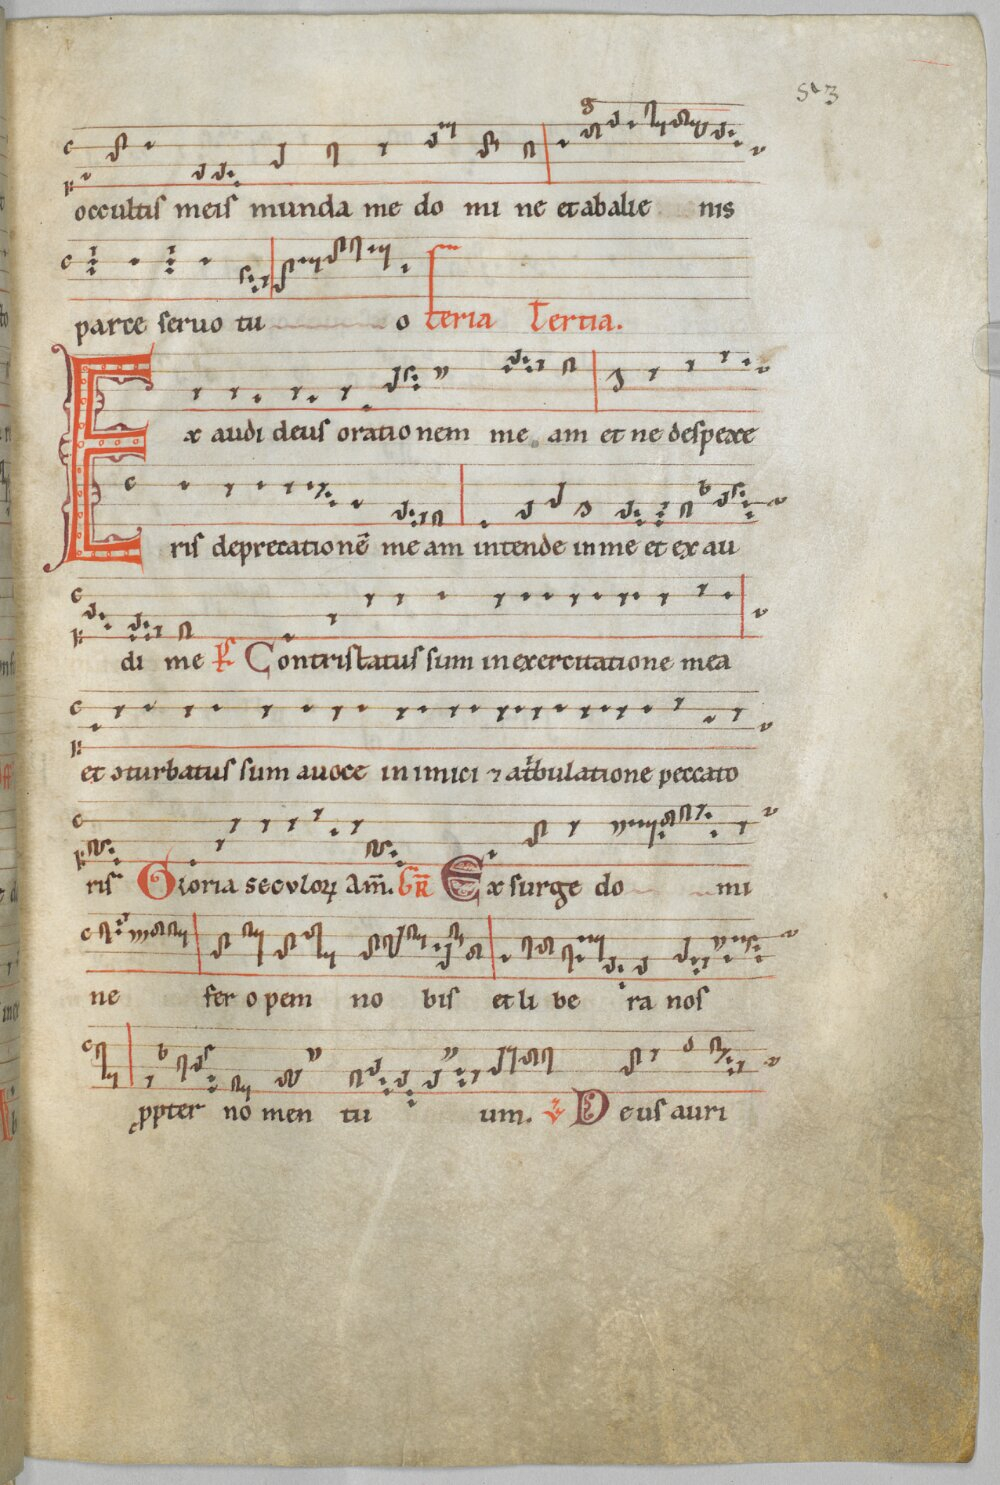 occultis meis munda me do mi ne et abalie nis
parce servo tu o feria Tertia.
Ex audi deus orationem me am et ne despexe
ris deprecationē me am intende in me et ex au
di me Contristatus sum in exercitatione mea
et ɔturbatus sum a voce inimici ⁊ a tͥbulatione peccato
ris Gloria seculoꝝ Am̄. GR̄ Exsurge do mi
ne fer opem no bis et li be ra nos
ꝓpter nomen tu um. V Deus auri